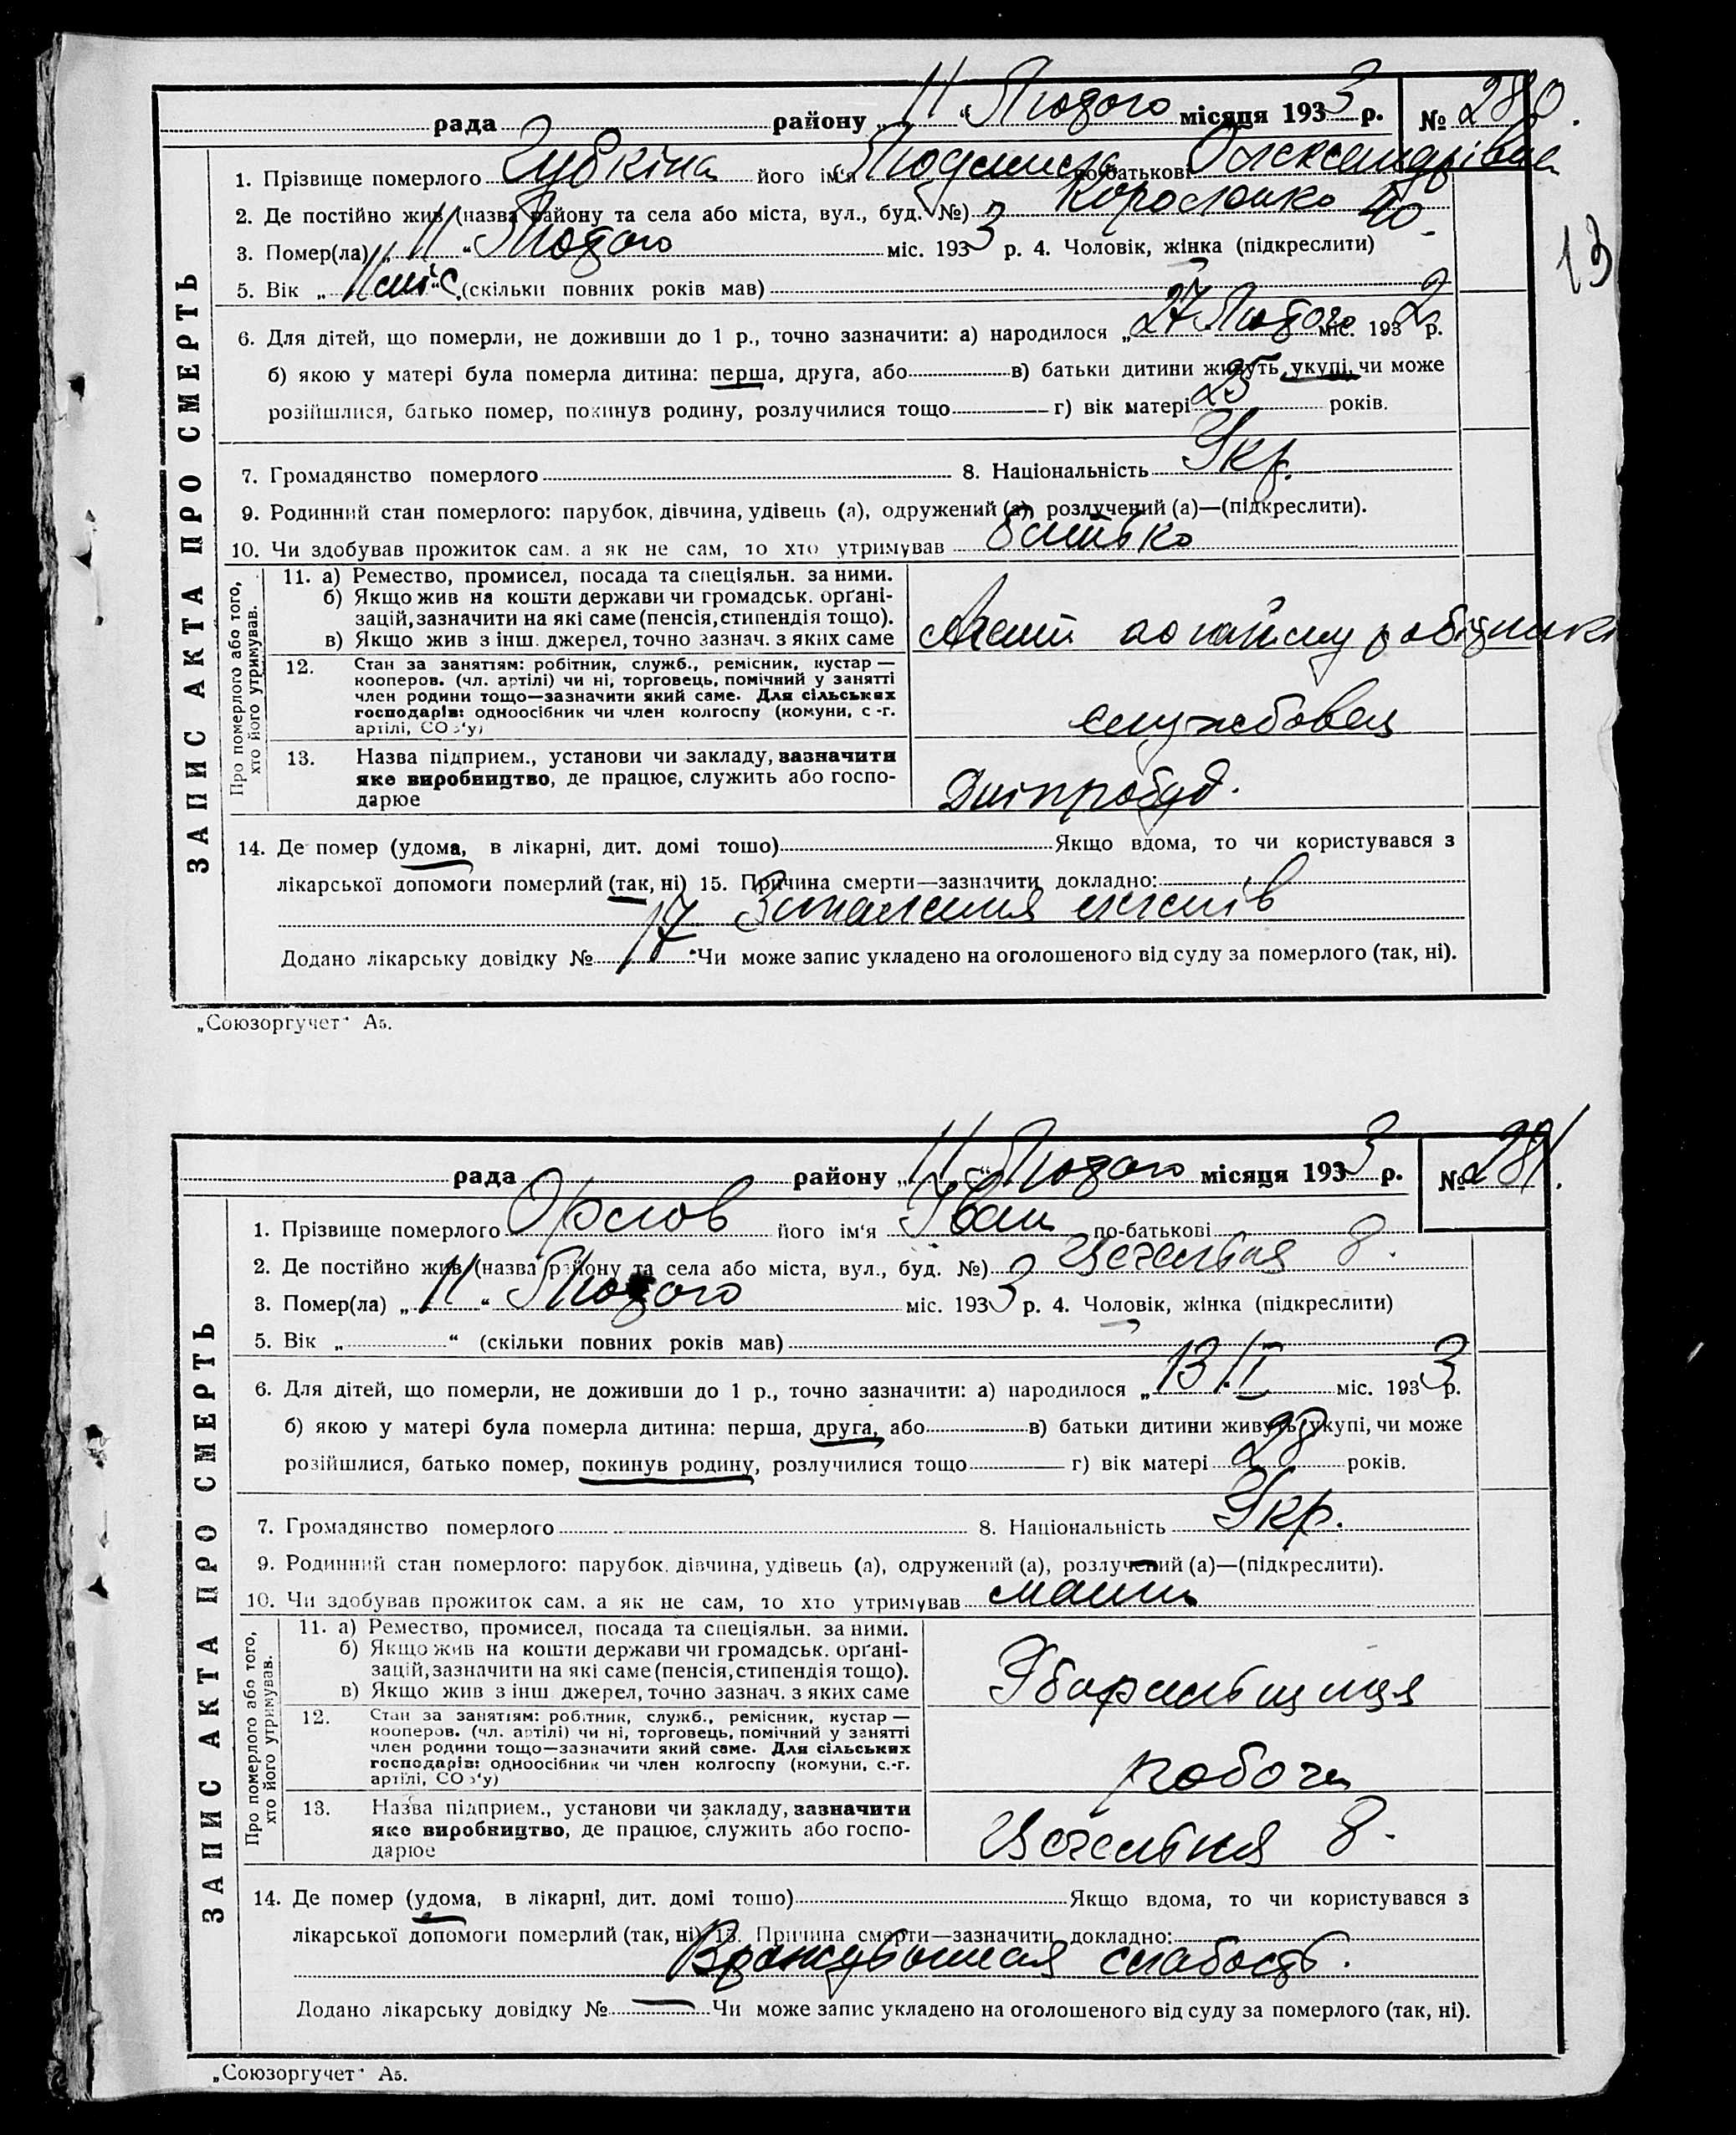 рада районy „ 11 “ Лютого місяця 1933 р. № 280.
1. Прізвище померлого Губкіна його ім'я Людмила по-батькові Олександрівна
2. Де постійно жив (назва району та села або міста, вул., буд. №) Короленко 40
3. Помер(ла) „ 11 “ Лютого міс. 1933 р. 4. Чоловік, жінка (підкреслити)
13
5. Вік „ 11 міс. (скільки повних років мав)
6. Для дітей, що померли, не доживши до 1 р., точно зазначити: а) народилося „ 27 Лютого міс. 1932 р.
б) якою у матері була померла дитина: перша, друга, або в) батьки дитини живуть укупі, чи може
розійшлися, батько помер, покинув родину, розлучилися тощо г) вік матері 25 років.
7. Громадянство померлого 8. Національність Укр.
9. Родинний стан померлого: парубок, дівчина, удівець (а), одружений (а), розлучений (а)—(підкреслити).
10. Чи здобував прожиток сам, а як не сам, то хто утримував батько
ЗАПИС АКТА ПРО СМЕРТЬ
Про померлого або того, хто його утримував.
11. а) Ремество, промисел, посада та спеціяльн. за ними.
б) Якщо жив на кошти держави чи громадськ. орґані-
зацій, зазначити на які саме (пенсія, стипендія тощо).
в) Якщо жив з інш. джерел, точно зазнач. з яких саме
Агент по найму робітників
12. Стан за заняттям: робітник, служб., ремісник, кустар—
кооперов. (чл. артілі) чи ні, торговець, помічний у занятті
член родини тощо—зазначити який саме. Для сільських
господарів: одноосібник чи член колгоспу (комуни, с.-г.
артілі, СОЗ'у)
службовець
13. Назва підприєм., установи чи закладу, зазначити
яке виробництво, де працює, служить або госпо-
дарює
Дніпробуд.
14. Де помер (удома, в лікарні, дит. домі тощо) Якщо вдома, то чи користувався з
лікарської допомоги померлий (так, ні) 15. Причина смерти—зазначити докладно:
Запалення легенів
Додано лікарську довідку № 17 Чи може запис укладено на оголошеного від суду за померлого (так, ні).
„Союзоргучет“ А5.
рада району „ 11 “ Лютого місяця 1933 р. № 281.
1. Прізвище померлого Орлов його ім'я Іван по-батькові
2. Де постійно жив (назва району та села або міста, вул., буд. №) 8.
3. Помер(ла) „ 11 “ Лютого міс. 1933 р. 4. Чоловік, жінка (підкреслити)
5. Вік „ “ (скільки повних років мав)
6. Для дітей, що померли, не доживши до 1 р., точно зазначити: а) народилося „ 13/I міс. 1933 р.
б) якою у матері була померла дитина: перша, друга, або в) батьки дитини живуть укупі, чи може
розійшлися, батько помер, покинув родину, розлучилися тощо г) вік матері 28 років.
7. Громадянство померлого 8. Національність Укр.
9. Родинний стан померлого: парубок, дівчина, удівець (а), одружений (а), розлучений (а)—(підкреслити).
10. Чи здобував прожиток сам, а як не сам, то хто утримував мати
ЗАПИС АКТА ПРО СМЕРТЬ
Про померлого або того, хто його утримував.
11. а) Ремество, промисел, посада та спеціяльн. за ними.
б) Якщо жив на кошти держави чи громадськ. орґані-
зацій, зазначити на які саме (пенсія, стипендія тощо).
в) Якщо жив з інш. джерел, точно зазнач. з яких саме
Уборильщиця
12. Стан за заняттям: робітник, служб., ремісник, кустар—
кооперов. (чл. артілі) чи ні, торговець, помічний у занятті
член родини тощо—зазначити який саме. Для сільських
господарів: одноосібник чи член колгоспу (комуни, с.-г.
артілі, СОЗ'у)
робоча
13. Назва підприєм., установи чи закладу, зазначити
яке виробництво, де працює, служить або госпо-
дарює
8.
14. Де помер (удома, в лікарні, дит. домі тощо) Якщо вдома, то чи користувався з
лікарської допомоги померлий (так, ні) 15. Причина смерти—зазначити докладно:
слабость.
Додано лікарську довідку № — Чи може запис укладено на оголошеного від суду за померлого (так, ні).
„Союзоргучет“ А5.